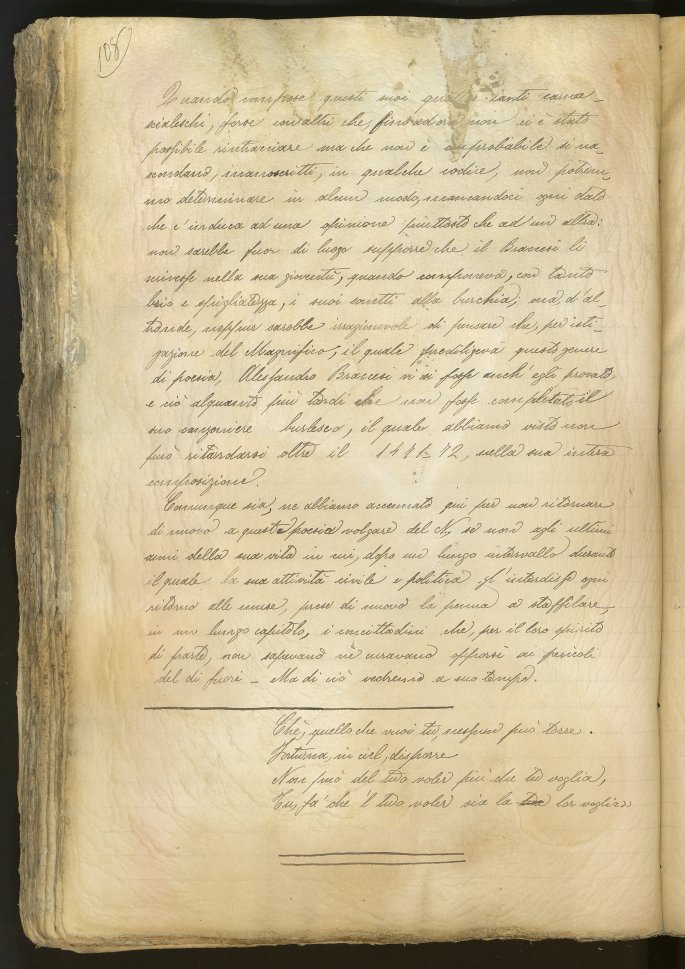 108
Quando compose questi suoi canti carna-
scialeschi, forse con altri che, finadora non ci è stato
possibile rintracciare ma che non è improbabile si na-
scondano, manoscritti, in qualche codice, non potrem-
mo determinare in alcun modo, mancandoci ogni dato
che c'induca ad una opinione piuttosto che ad un altra:
non sarebbe fuor di luogo supporre che il Braccesi li
scrivesse nella sua gioventù, quando componeva, con tanto
brio e spigliatezza, i suoi sonetti alla burchia; ma, d'al-
tronde, neppur sarebbe irragionevole di pensare che, per isti-
gazione del Magnifico, il quale prediligeva questo genere
di poesia, Alessandro Braccesi vi si fosse anch'egli provato,
e ciò alquanto più tardi che non fosse completato il
suo canzoniere burlesco, il quale abbiamo visto non
può ritardarsi oltre il 1471-72, nella sua intera
composizione.
Comunque sia, ne abbiamo accennato qui per non ritornare
di nuovo a questa poesia volgare del N. se non agli ultimi
anni della sua vita in cui, dopo un lungo intervallo durante
il quale la sua attività civile e politica gl'interdisse ogni
ritorno alle muse, prese di nuovo la penna a staffilare,
in un lungo capitolo, i concittadini che, per il loro spirito
di parte, non sapevano nè curavano opporsi ai pericoli
del di fuori – Ma di ciò vedremo a suo tempo.
Chè, quello che vuoi tu, nessun può torre.
Fortuna, in ciel, disporre
Non può del tuo voler più che tu voglia,
Tu, fa' che 'l tuo voler sia la lor voglia»